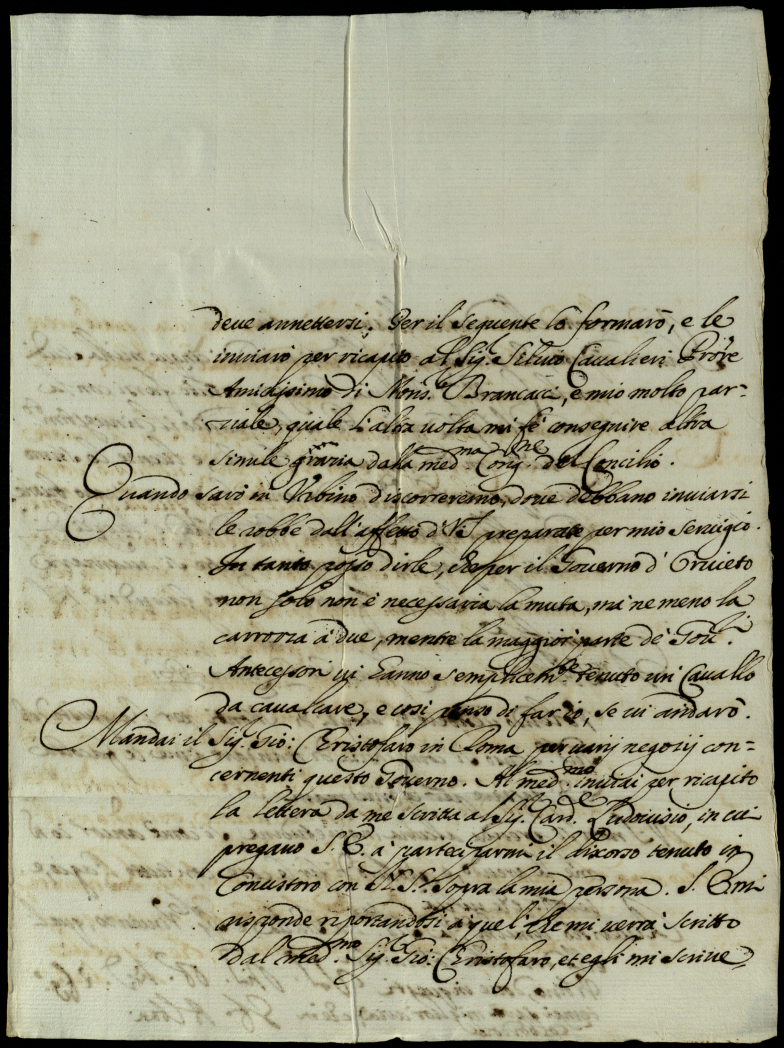 deue annettersi. Per il sequente lo formarò, e le
inuiarò per ricapito al Sig.r Siluio Caualieri
Amicissimo di Mons.r Brancacci, e mio molto par=
ziale, quale l'altra volta mi fè conseguire altra
simile grazia dalla med.ma Cong.ne del Concilio.
Quando sarò in Vrbino discorreremo, doue debbano inuiarsi
le robbe dall'affetto di V.S. preparate per mio seruigio.
In tanto posso dirle, che per il Gouerno d'Oruieto
non solo non è necessaria la muta, mà ne meno la
carrozza à due, mentre la maggior parte de' Gou.ri
Antecessori ui hanno semplicem.te tenuto un Cauallo
da caualcare, e così penso di far io, se ui andarò.
Mandai il Sig.r Gio: Christofaro in Roma per uarij negozij con=
cernenti questo Gouerno. Al med.mo inuiai per ricapito
la lettera da me scritta al Sig.r Card.e Ludouisio, in cui
pregauo S.E. à parteciparmi il discorso tenuto in
Concistoro con N.S. sopra la mia persona. S.E. mi
risponde riportandosi à quel, che mi uerrà scritto
dal med.mo Sig.r Gio: Christofaro, et egli mi scriue